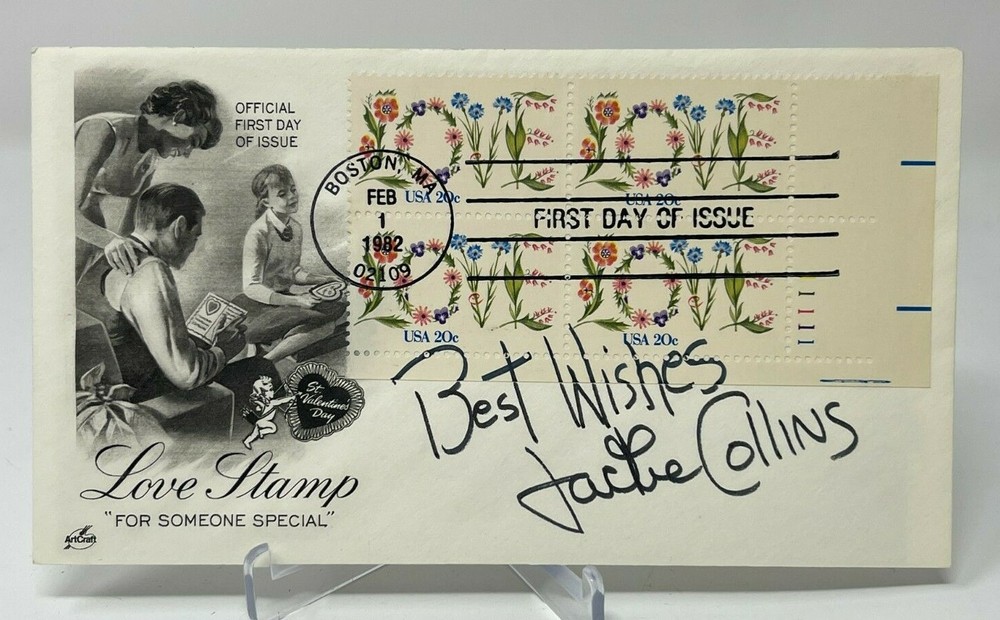 OFFICIAL
FIRST DAY
OF ISSUE
LOVE LOVE
USA 20c USA 20c
BOSTON, MA
FEB
1
1982
02109
FIRST DAY OF ISSUE
LOVE LOVE
USA 20c USA 20c
1111
St.
Valentines
Day
Best Wishes
Jackie Collins
Love Stamp
"FOR SOMEONE SPECIAL"
ArtCraft